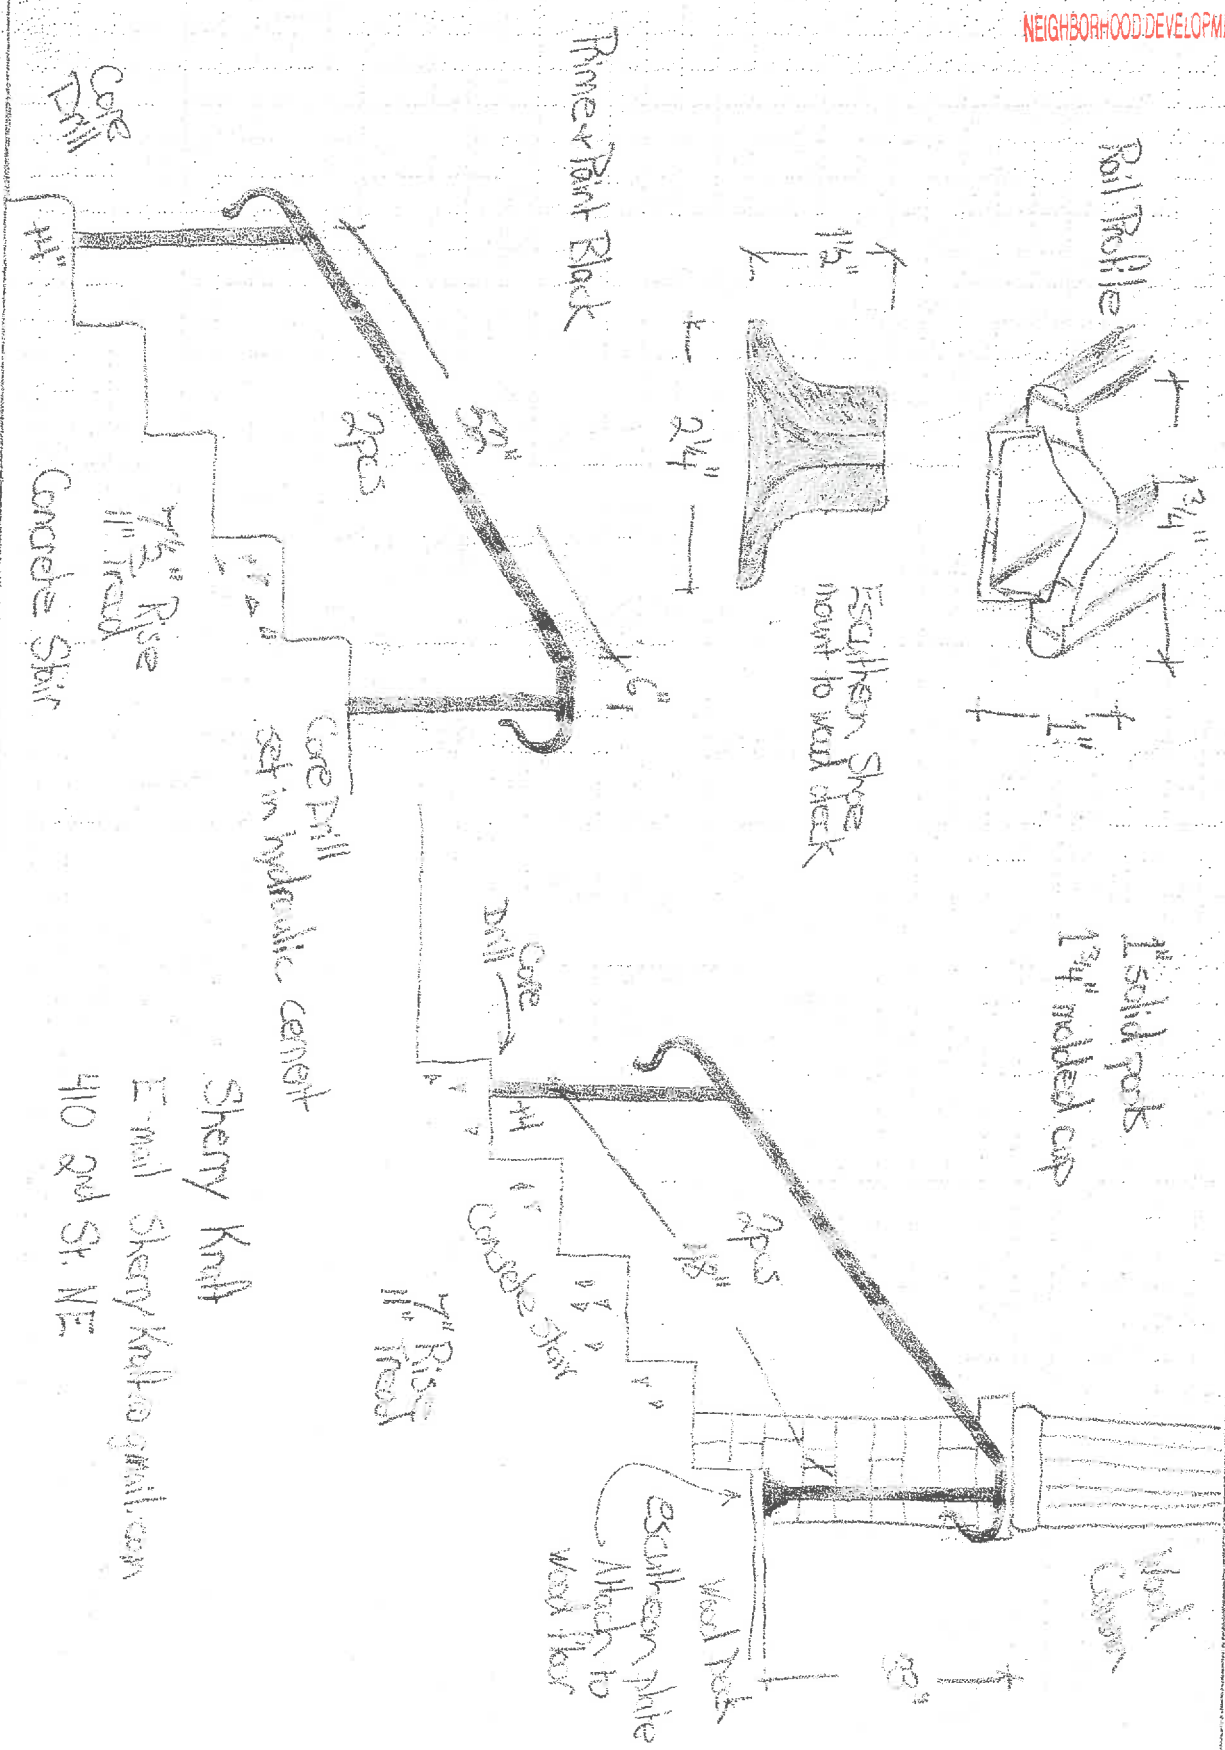 NEIGHBORHOOD DEVELOPM
Rail Profile
1 3/4"
1"
1" solid posts
1 3/4" molded cap
1 1/2"
2 1/4"
Escutheon Shoe
mount to wood deck
Primer + Paint Black
Core
Drill
+4"
58"
2pcs
6"
7 1/2" Rise
11" Tread
Concrete Stair
Core Drill
set in hydraulic cement
Core
Drill
+4
2pcs
48"
Concrete Stair
7" Rise
11" Tread
Wood
Column
Wood
escutheon plate
Attach to
wood floor
Sherry
E-mail
410 2nd St. NE